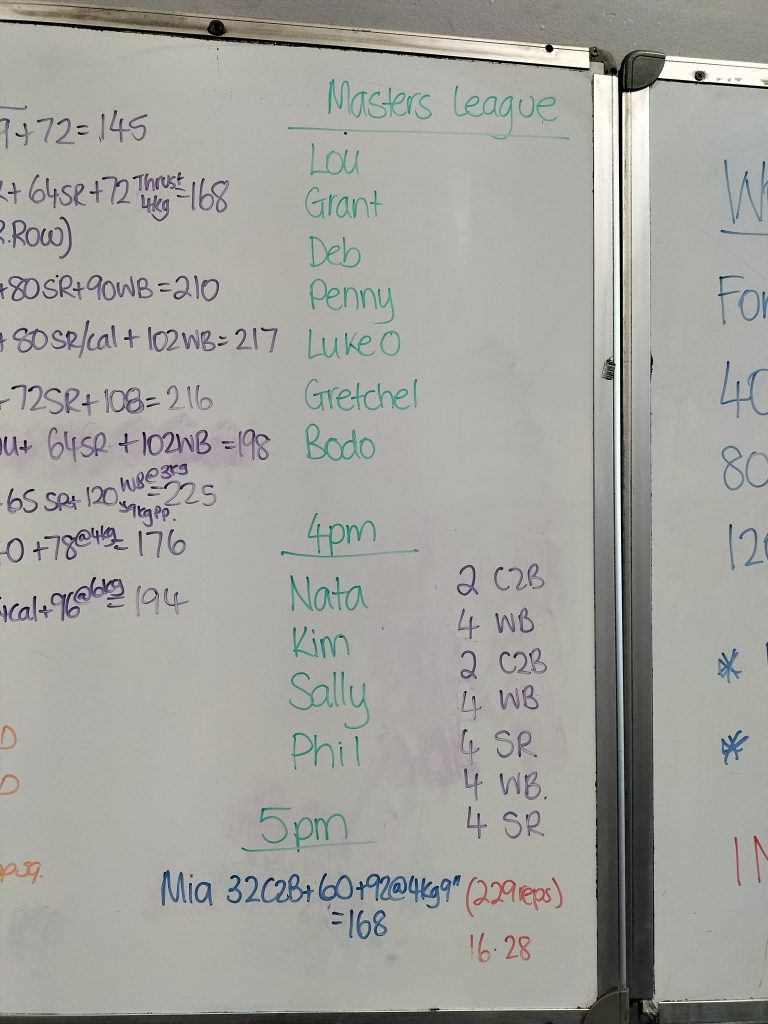 9+72=145
+64SR+72 Thrust 4kg =168
R.ROW)
+80SR+90WB=210
+80SR/Cal+102WB=217
+72SR+108=216
MU+ 64SR +102WB =198
65SR+120 WB@3kg =225
0+78@4kg= 176
cal+96@6kg= 194
D
D
Masters League
Lou
Grant
Deb
Penny
Luke O
Gretchel
Bodo
4pm
Nata
Kim
Sally
Phil
2 C2B
4 WB
2 C2B
4 WB
4 SR
4 WB.
4 SR
5pm
Mia 32C2B+60+92@4kg9" (229reps)
=168
16.28
For
40
80
*
*